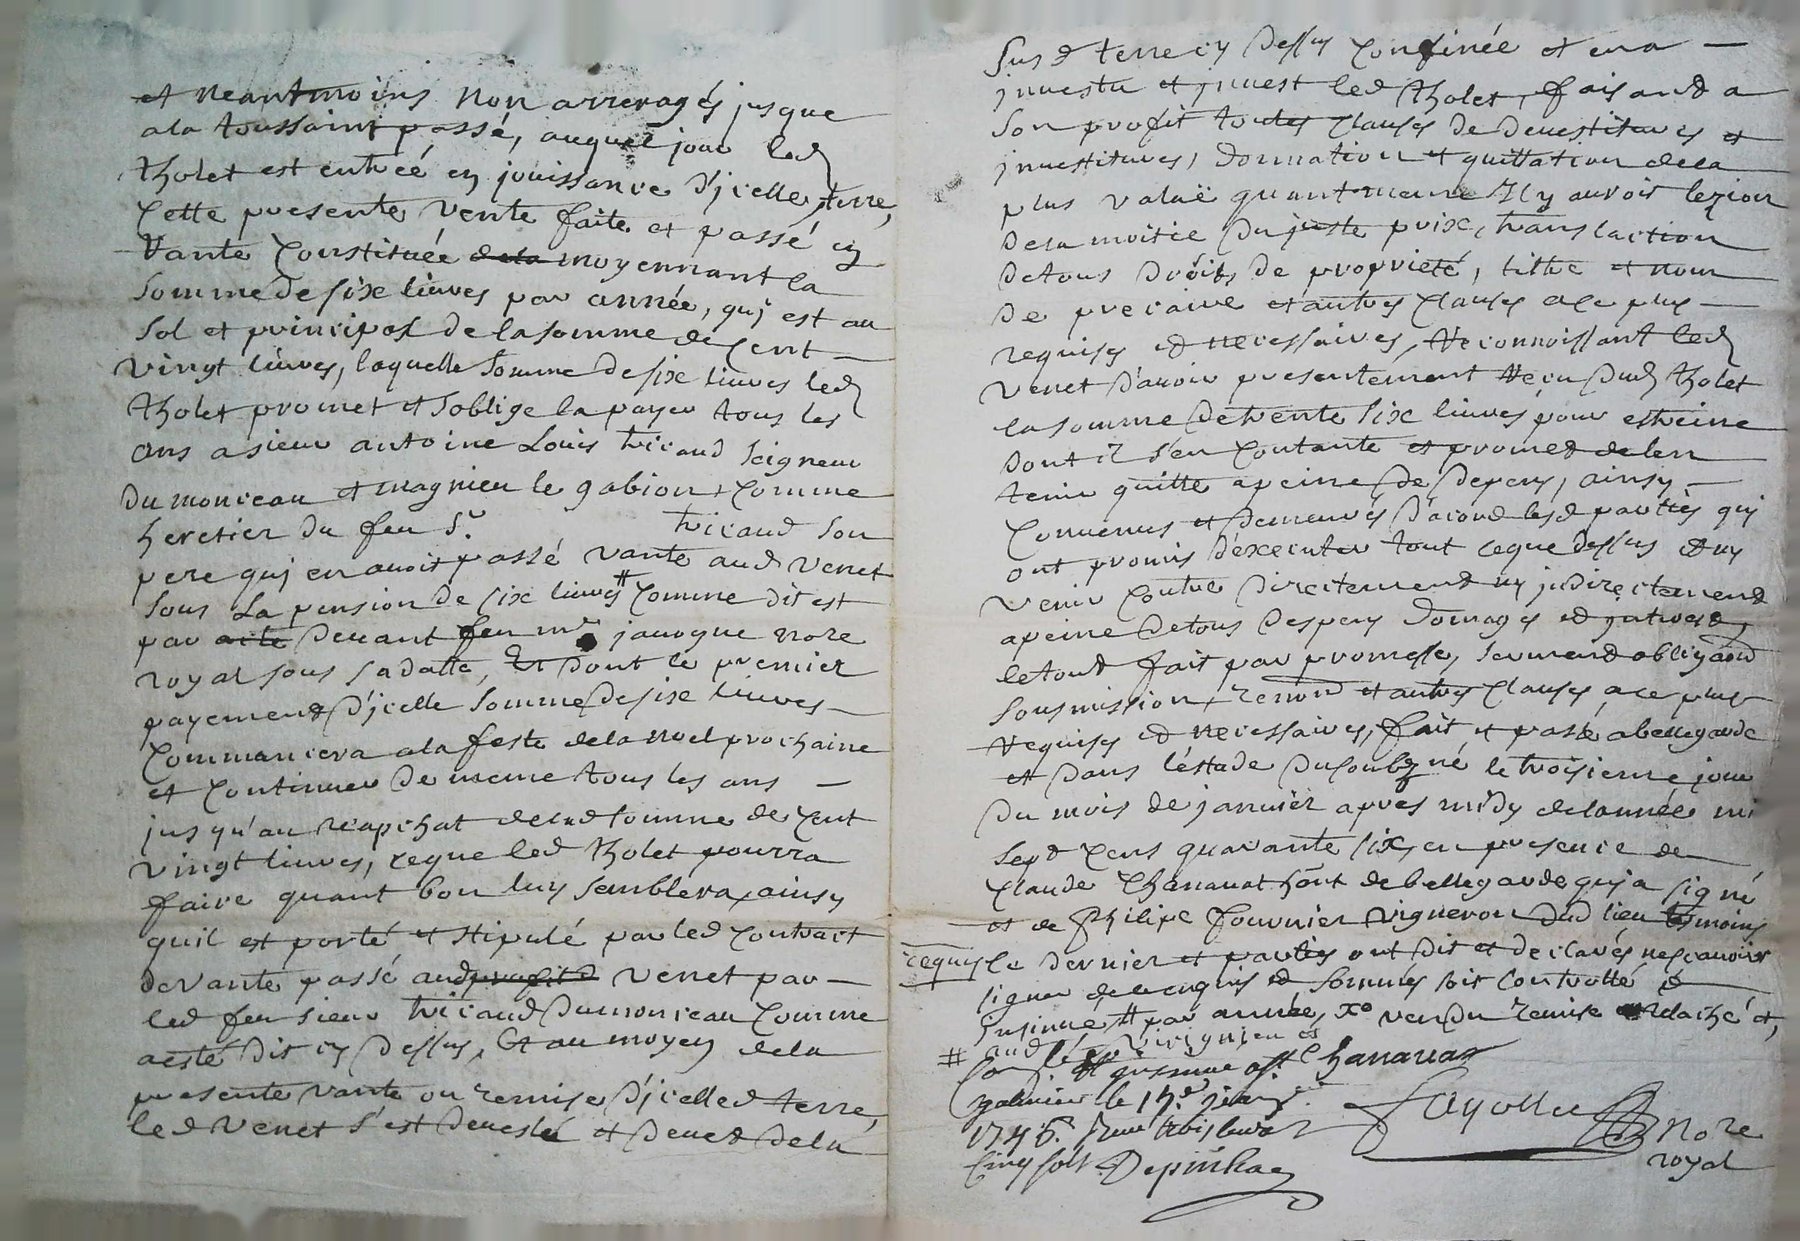 et neantmoins non arreragés jusque
a la toussaint passé, auquel jour led
tholet est entreé en jouissance d'jcelle terre,
Cette presente vente faite et passé en
Vante Constituée de la moyennant la
Somme de six liuves par année, qui est au
Sol et principal de la somme de Cent
vingt liuves, laquelle somme de six liuves led
tholet promet et s'oblige la payer tous les
ans a sieur antoine Louis tricaud seigneur
du monceau et magnieu le gabion, Comme
heretier du feu Sr tricaud son
pere qui en auoit passé vante aud venet
sous La pension de six liuves # Comme dit est
par acte deuant feu me jauogne nore
royal sous sa datte, Et dont le premier
payement d'jcelle somme de six liuves
Commancera a la feste de la noel prochaine
et Continuer de meme tous les ans
jusqu'au reapchat de lad somme de Cent
vingt liuves, ceque led tholet pourra
faire quant bon luy semblera, ainsy
quil est porté et stipulé par led Contract
de vante passé aud venet par
led feu sieur tricaud dumonceau Comme
a esté dit cy dessus, Et au moyen de la
presente vante ou remise d'jcelled terre,
led venet s'est deuestu et deuet de la
susd terre cy dessus Confinée et en a
jnuestu et jnuest led tholet, faisand a
son profit toutes Clauses de deuestitures et
jnuestitures, donnation et quittation de la
plus valuë quant meme Il y auroit lezion
de la moitie du juste prix, translaction
de tous droits de proprieté, tiltre et nom
de precaire et autres Clauses a ce plus
requises et necessaires, Reconnoissant led
venet d'auoir presentement Recu dud tholet
la somme de trente six liuves pour estreine
dont il s'en Contante et promet de len
tenir quitte a peine de depens, ainsy
Conuenus et demeurés d'acord lesd parties qui
ont promis d'executer tout ceque dessus et ny
venir Contre directement ny jndirectement
a peine de tous despens domages et jnterests
le tout fait par promesse, serment obligaon
sousmission, renon et autres Clauses, a ce plus
Requises et necessaires, fait et passé a bellegarde
et dans l'éstude du soubzné le troisieme jour
du mois de januier apres midy de lannée mi
sept Cens quarante six, en presence de
Claude Chanauat hont de bellegarde qui a signé
et de Philipe Fournier vigneron dud lieu tesmoins
icequis le dernier et parties ont dit et declarés ne scauoir
signer de ce enquis et sommés soit Controllé et
jnsinué # par année, Xo vendu remise relaché et,
# aud
Chanauat
Controllé
le 15e
1746.
Cinq sols
Fayolle
Nore
royal